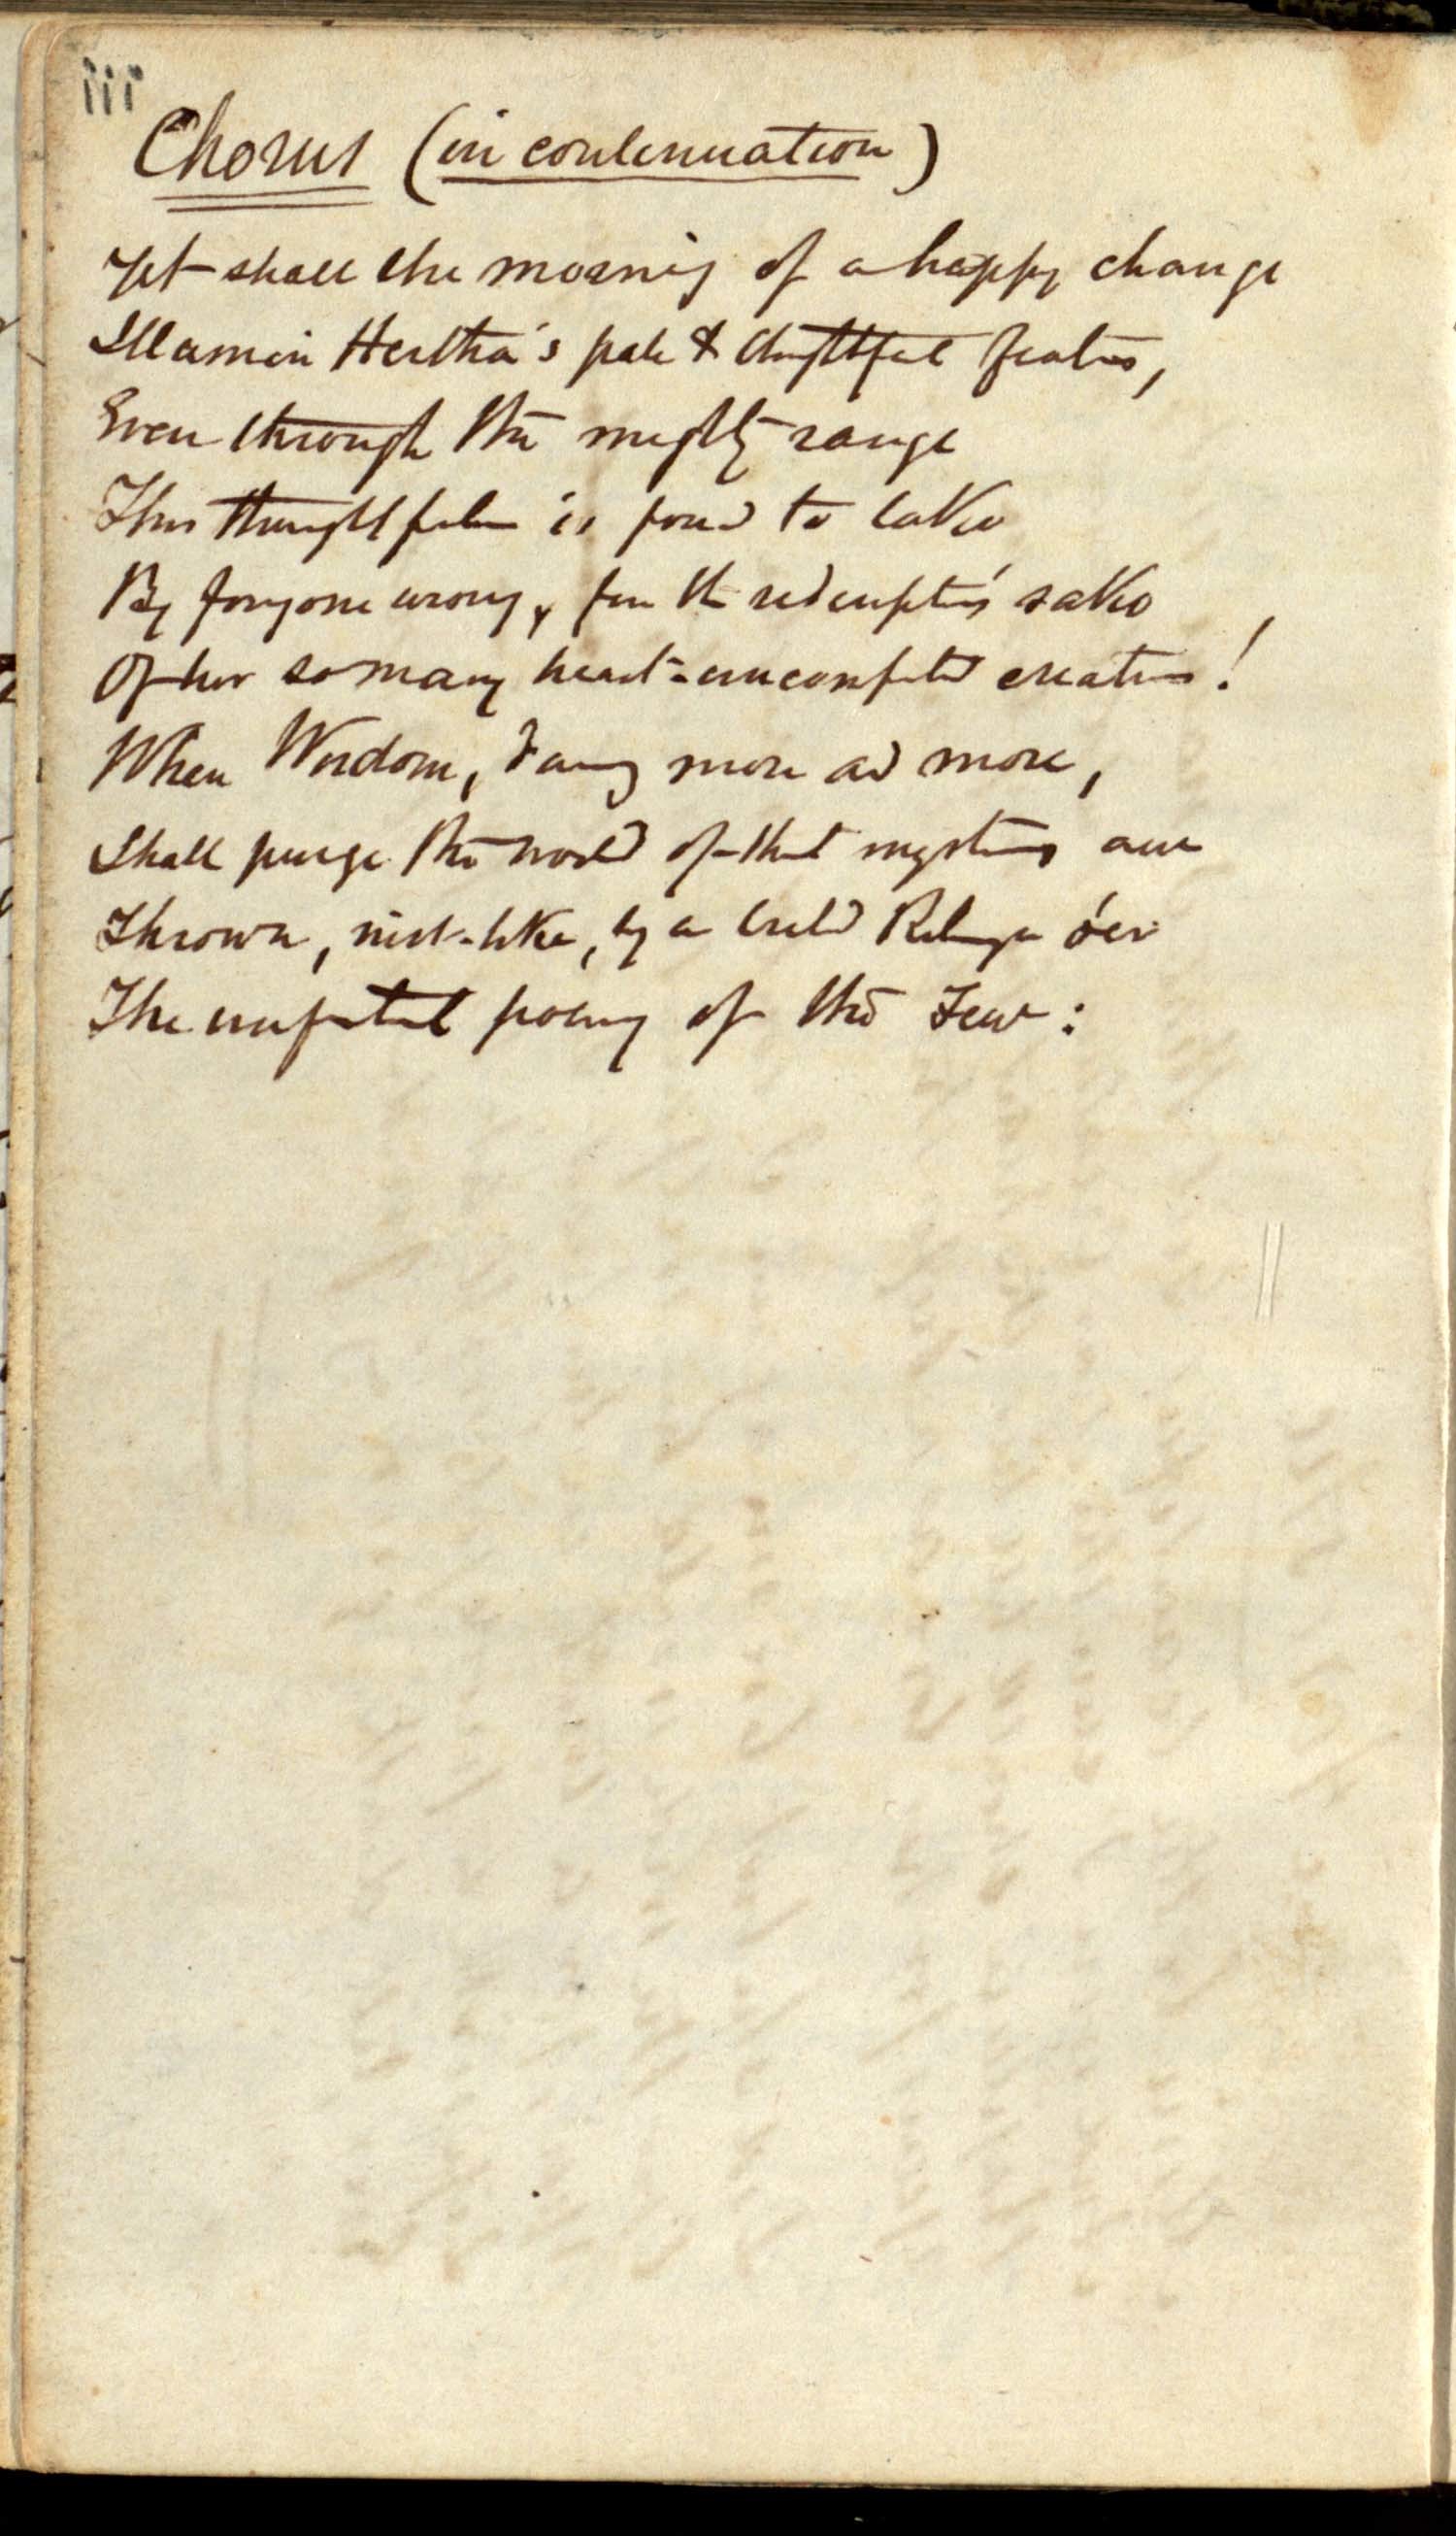 iii
Chorus (in continuation)
Yet shall the morning of a happy change
Illumin Hertha's pale & thoughtful features,
Even through the mighty range
Thus thoughtful is found to take
By foregone wrong, for the redemption's sake
Of her so many heart-uncomforted creatures!
When Wisdom, daring more and more,
Shall purge the world of that mysterious awe
Thrown, mist-like, by a Religion o'er
The of the Few: